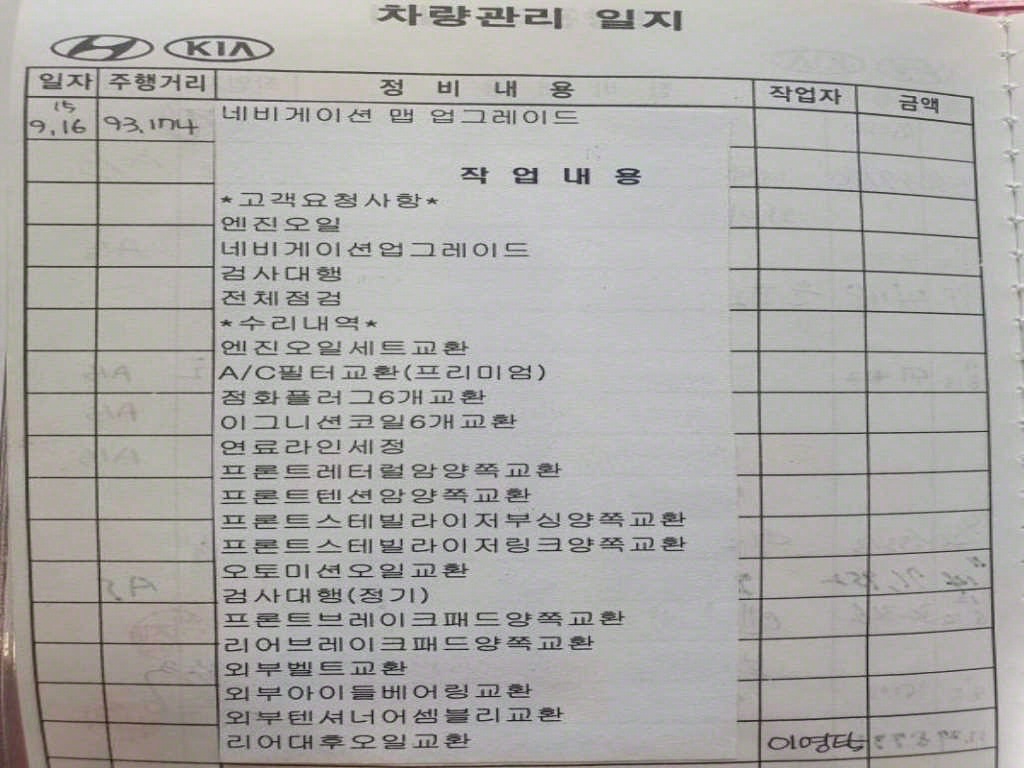 차량관리 일지
KIA
일자 주행거리 정 비 내 용 작업자 금액
15
9,16 93,174 네비게이션 맵 업그레이드
작 업 내 용
*고객요청사항*
엔진오일
네비게이션업그레이드
검사대행
전체점검
*수리내역*
엔진오일세트교환
A/C필터교환(프리미엄)
점화플러그6개교환
이그니션코일6개교환
연료라인세정
프론트레터럴암양쪽교환
프론트텐션암양쪽교환
프론트스테빌라이저부싱양쪽교환
프론트스테빌라이저링크양쪽교환
오토미션오일교환
검사대행(정기)
프론트브레이크패드양쪽교환
리어브레이크패드양쪽교환
외부벨트교환
외부아이들베어링교환
외부텐셔너어셈블리교환
리어대후오일교환 이영탁